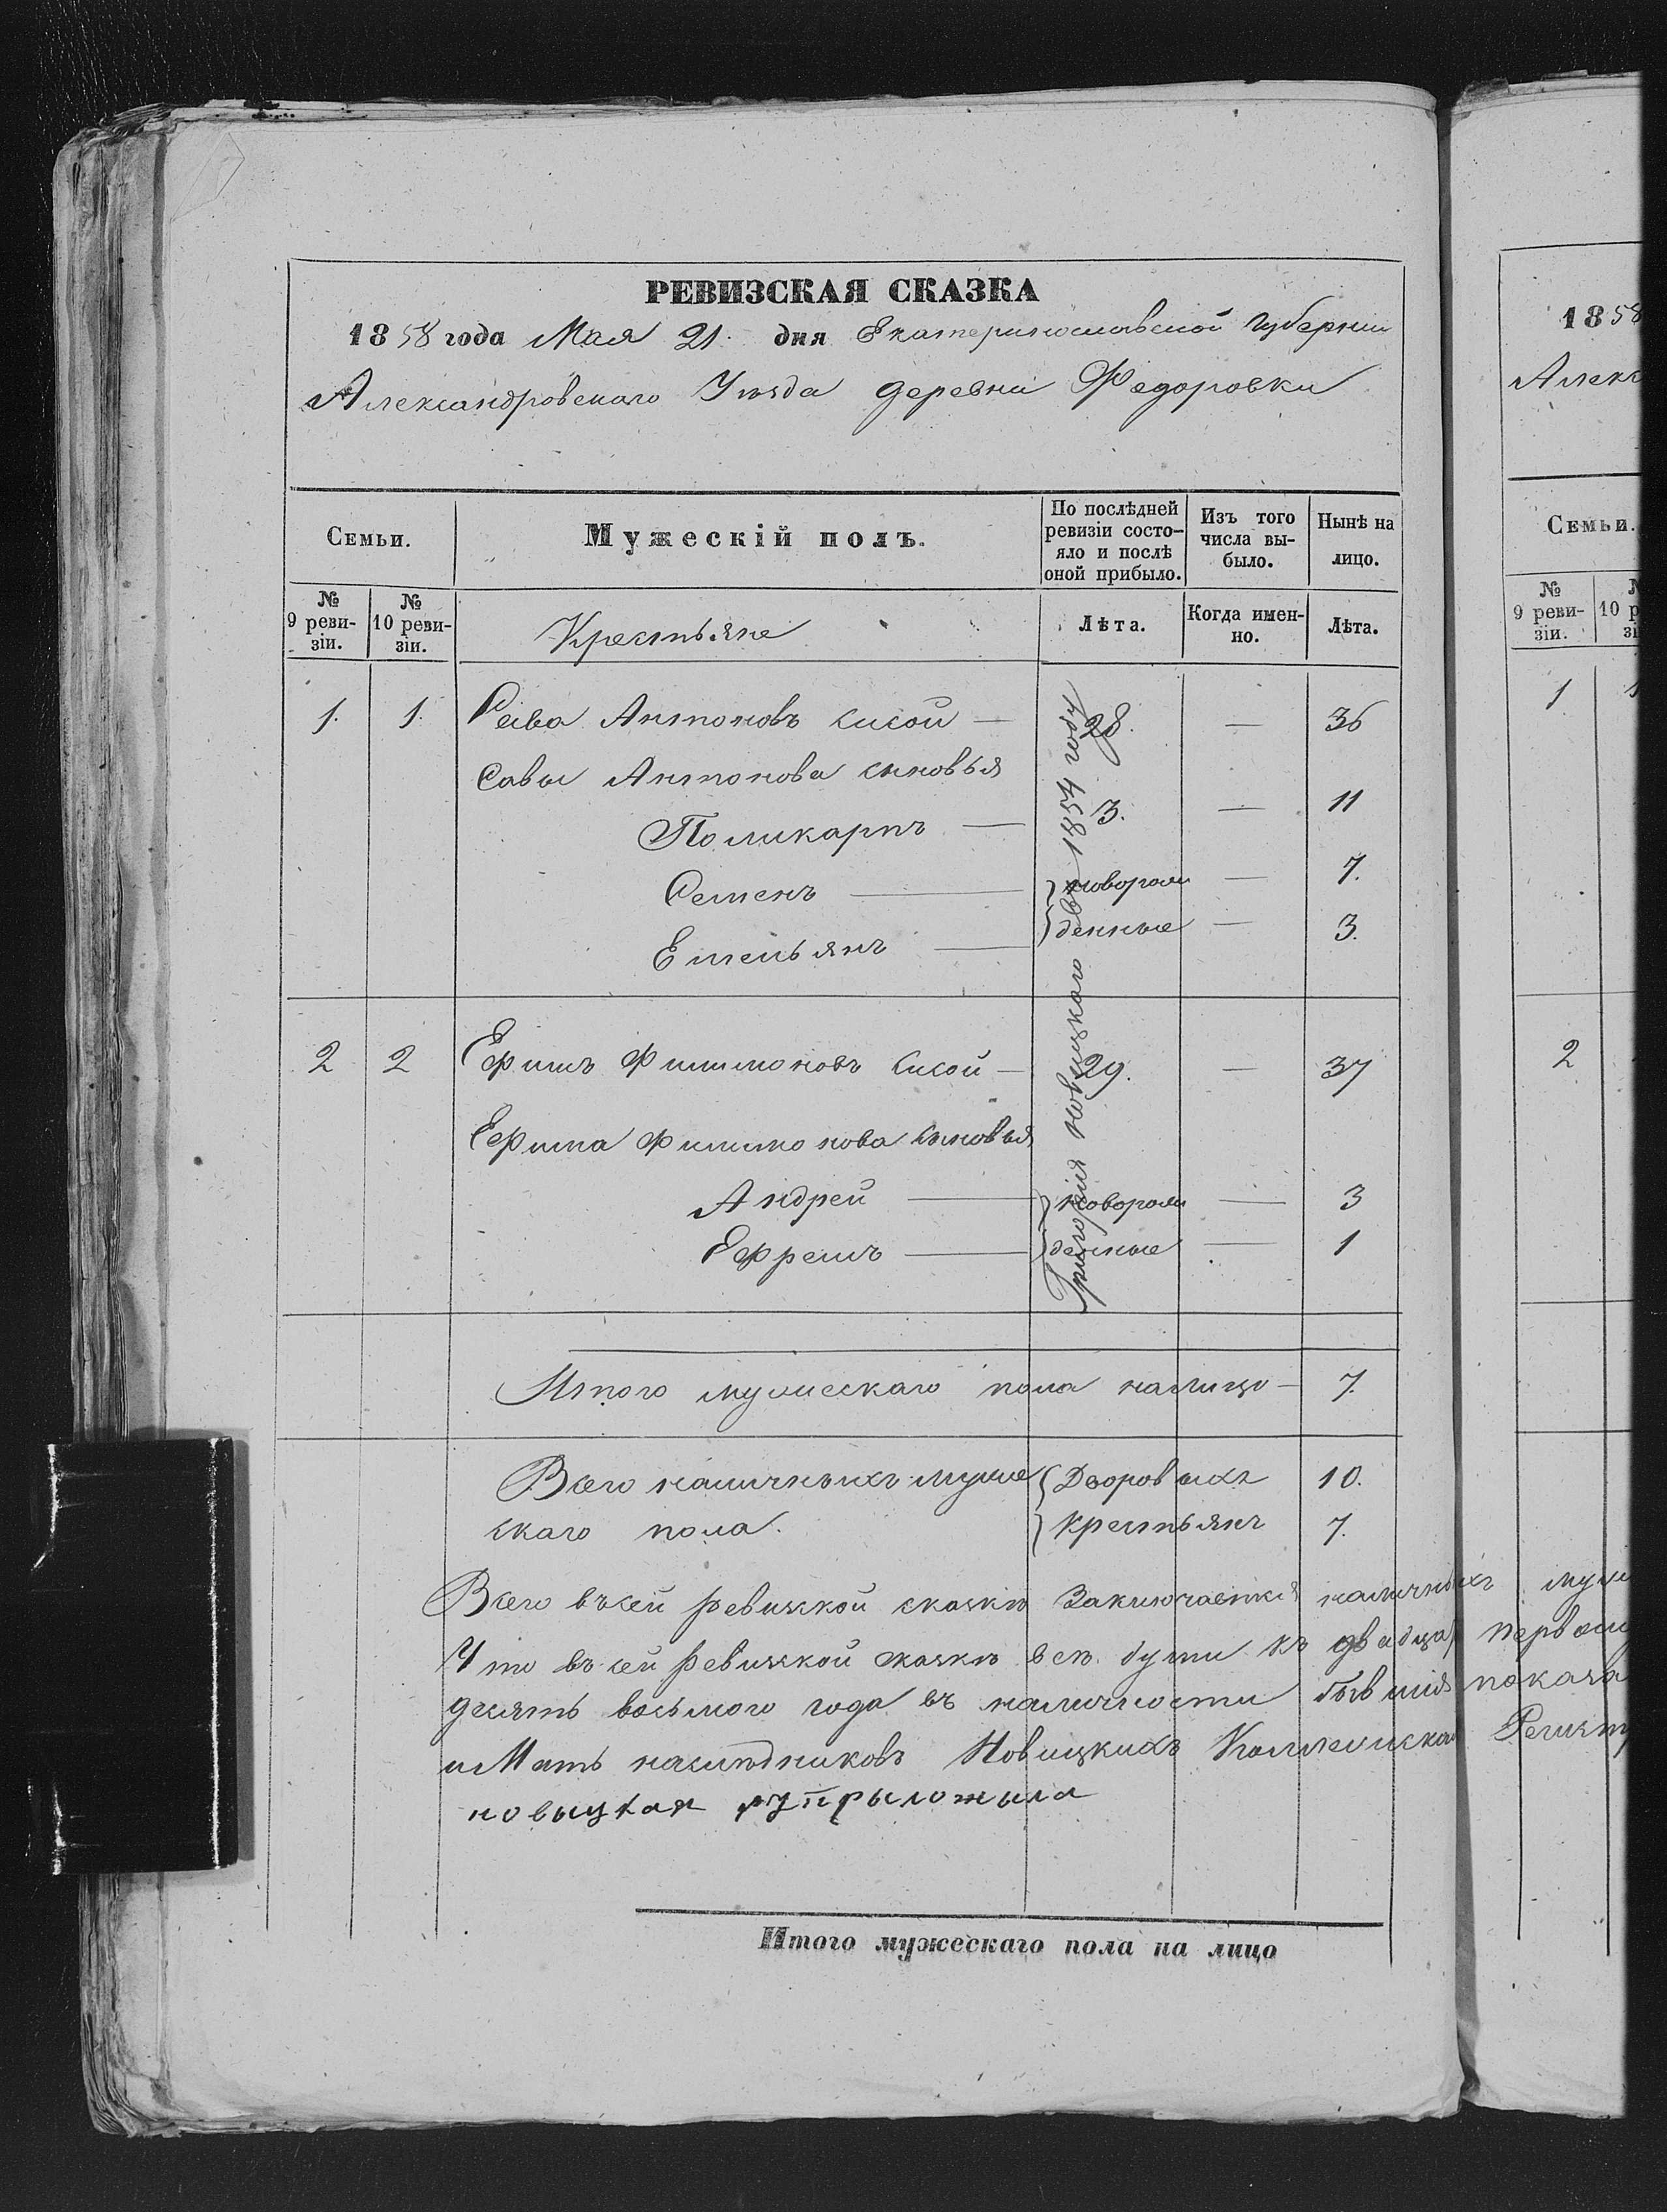 РЕВИЗСКАЯ СКАЗКА
1858 года Мая 21. дня Екатеринославской Губернии
Александровскаго Уѣзда деревни Федоровки
Семьи.
Мужескій полъ.
По послѣдней ревизіи состо-
яло и послѣ
оной прибыло.
Изъ того
числа вы-
было.
Нынѣ на
лицо.
№
9 реви-
зіи.
№
10 реви-
зіи.
Крестьяне
Лѣта.
Когда имен-
но.
Лѣта.
1. 1. Сава Антоновъ Сисой — 28. — 36
Савы Антонова сыновья
Поликарпъ — 3. — 11
Семенъ — новорож — 7.
Емельянъ — денные — 3.
2 2 Ефимъ Филимоновъ Сисой — 29. — 37
Ефима Филимонова сыновья
Андрей — новорож — 3
Ефремъ — денные — 1
Григорія Новицкаго 1854 году
Итого мужескаго пола налицо — 7.
Всего наличныхъ муже Дворовыхъ 10.
скаго пола. Крестьянъ 7.
Всего въ сей ревизской сказкѣ заключается наличныхъ муже
Что въ сей Ревизской сказкѣ всѣ души къ двадцать первому
десять восьмого года въ наличности бывшія показа
и Мать наслѣдниковъ Новицкихъ Коллежская Регистр
новыцкая руприложыла
Итого мужескаго пола на лицо
1858
Алекс
Семьи.
№
9 реви-
зіи.
№
10 р
зі
1 1
2